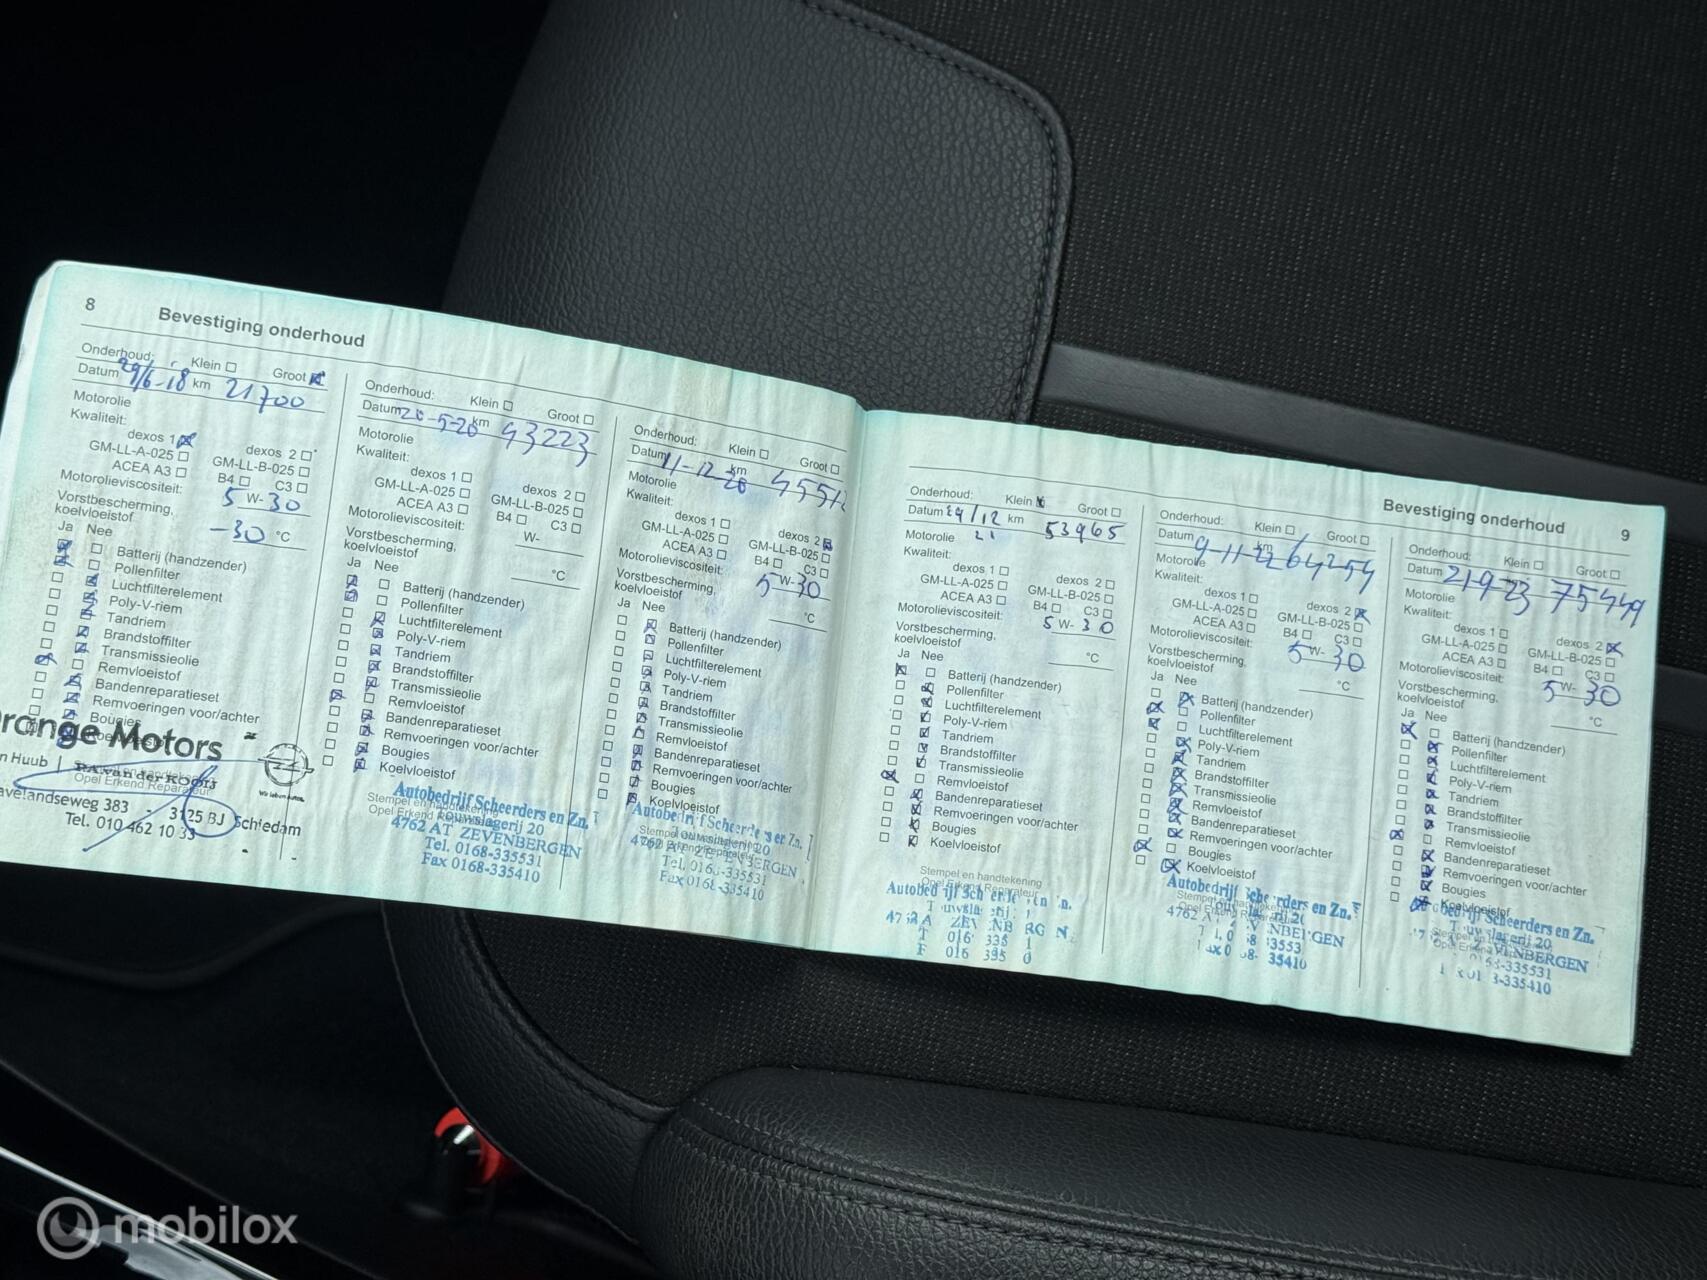 8
Bevestiging onderhoud
Onderhoud: Klein Groot
Datum 29/6-18 km 21700
Motorolie
Kwaliteit:
dexos 1 dexos 2
GM-LL-A-025 GM-LL-B-025
ACEA A3 B4 C3
Motorolieviscositeit: 5 W- 30
Vorstbescherming,
koelvloeistof -30 °C
Ja Nee
Batterij (handzender)
Pollenfilter
Luchtfilterelement
Poly-V-riem
Tandriem
Brandstoffilter
Transmissieolie
Remvloeistof
Bandenreparatieset
Remvoeringen voor/achter
Bougies
Orange Motors
n Huub | P.A. van der Kooij
Opel Erkend Reparateur
avelandseweg 383 - 3125 BJ Schiedam
Tel. 010 462 10 33
Onderhoud: Klein Groot
Datum 20-5-20 km 43223
Motorolie
Kwaliteit:
dexos 1 dexos 2
GM-LL-A-025 GM-LL-B-025
ACEA A3 B4 C3
Motorolieviscositeit: W-
Vorstbescherming,
koelvloeistof °C
Ja Nee
Batterij (handzender)
Pollenfilter
Luchtfilterelement
Poly-V-riem
Tandriem
Brandstoffilter
Transmissieolie
Remvloeistof
Bandenreparatieset
Remvoeringen voor/achter
Bougies
Koelvloeistof
Autobedrijf Scheerders en Zn.
Stempel en handtekening
Opel Erkend Reparateur
Touwslagerij 20
4762 AT ZEVENBERGEN
Tel. 0168-335531
Fax 0168-335410
Onderhoud: Klein Groot
Datum 11-12-20 km 4551
Motorolie
Kwaliteit:
dexos 1 dexos 2
GM-LL-A-025 GM-LL-B-025
ACEA A3 B4 C3
Motorolieviscositeit: 5 W- 30
Vorstbescherming,
koelvloeistof °C
Ja Nee
Batterij (handzender)
Pollenfilter
Luchtfilterelement
Poly-V-riem
Tandriem
Brandstoffilter
Transmissieolie
Remvloeistof
Bandenreparatieset
Remvoeringen voor/achter
Bougies
Koelvloeistof
Autobedrijf Scheerders en Zn.
Stempel en handtekening
Opel Erkend Reparateur
Touwslagerij 20
4762 AT ZEVENBERGEN
Tel. 0168-335531
Fax 0168-335410
Bevestiging onderhoud
9
Onderhoud: Klein Groot
Datum 24/12 21 km 53965
Motorolie
Kwaliteit:
dexos 1 dexos 2
GM-LL-A-025 GM-LL-B-025
ACEA A3 B4 C3
Motorolieviscositeit: 5 W- 30
Vorstbescherming,
koelvloeistof °C
Ja Nee
Batterij (handzender)
Pollenfilter
Luchtfilterelement
Poly-V-riem
Tandriem
Brandstoffilter
Transmissieolie
Remvloeistof
Bandenreparatieset
Remvoeringen voor/achter
Bougies
Koelvloeistof
Stempel en handtekening
Opel Erkend Reparateur
Onderhoud: Klein Groot
Datum 9-11-22 km 64254
Motorolie
Kwaliteit:
dexos 1 dexos 2
GM-LL-A-025 GM-LL-B-025
ACEA A3 B4 C3
Motorolieviscositeit: 5 W- 30
Vorstbescherming,
koelvloeistof °C
Ja Nee
Batterij (handzender)
Pollenfilter
Luchtfilterelement
Poly-V-riem
Tandriem
Brandstoffilter
Transmissieolie
Remvloeistof
Bandenreparatieset
Remvoeringen voor/achter
Bougies
Koelvloeistof
Autobedrijf Scheerders en Zn.
Onderhoud: Klein Groot
Datum 21-9-23 75449
Motorolie
Kwaliteit:
dexos 1 dexos 2
GM-LL-A-025 GM-LL-B-025
ACEA A3 B4 C3
Motorolieviscositeit: 5 W- 30
Vorstbescherming,
koelvloeistof °C
Ja Nee
Batterij (handzender)
Pollenfilter
Luchtfilterelement
Poly-V-riem
Tandriem
Brandstoffilter
Transmissieolie
Remvloeistof
Bandenreparatieset
Remvoeringen voor/achter
Bougies
Koelvloeistof
Scheerders en Zn.
mobilox